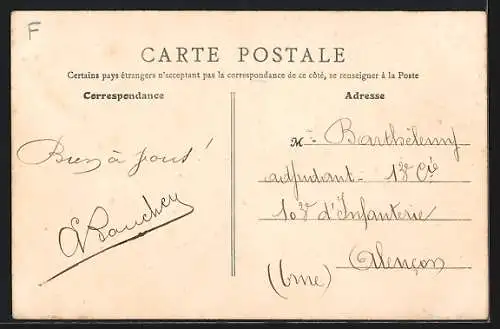 F
CARTE POSTALE
Certains pays étrangers n'acceptant pas la correspondance de ce côté, se renseigner à la Poste
Correspondance
Bien à vous !
Adresse
M. Barthélemy
adjudant 1re Cie
103e d'Infanterie
Alençon
(Orne)